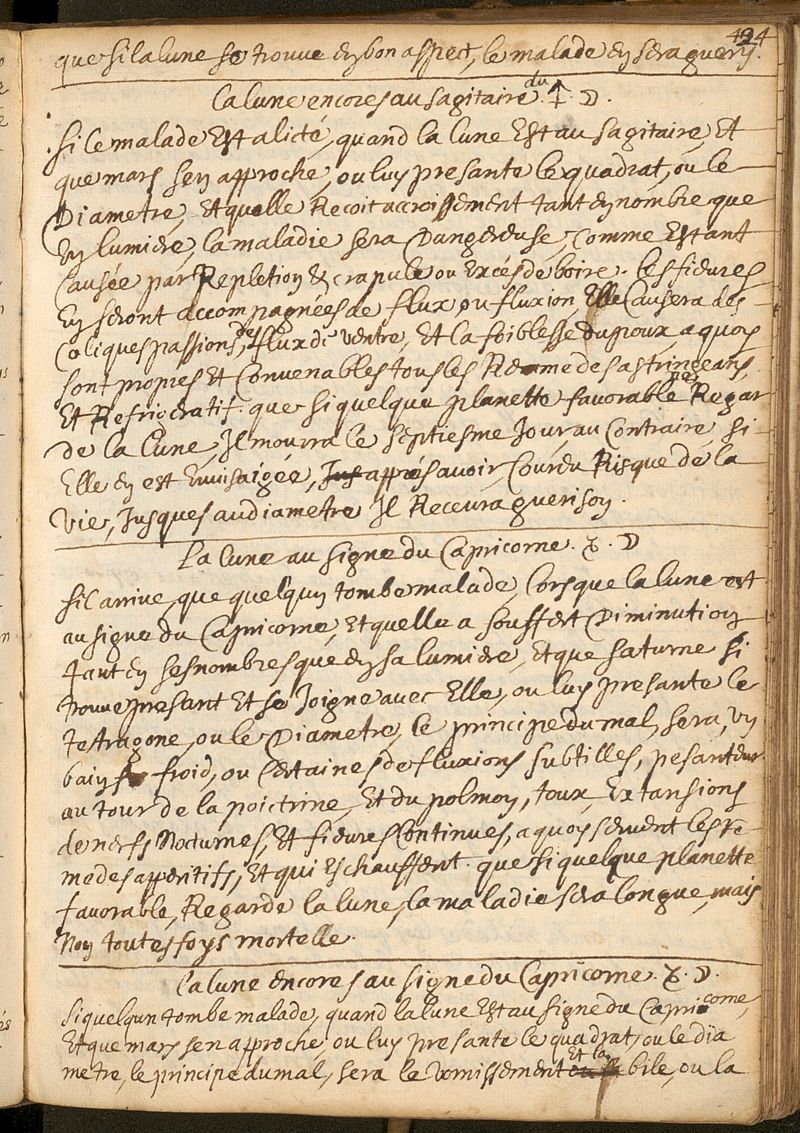 494
que si la lune se trouve en bon aspect, le malade en sera guery.
La lune encores au sagitaire du ♐. ☽.
Si le malade Est alicté, quand la lune Est au sagitaire, Et
que mars sen approche, ou luy presante le quadrat, ou le
Diametre, Et quelle Recoit accroissement tant en nombre que
En lumiere, la maladie sera Dangereuse, Comme Estant
Causée par Repletion & crapule ou Excés de boire. les fievres
En seront accompagnées de flux ou fluxion, Elle Causera des
Coliques passions, de flux di ventre, Et la foiblesse du poux, a quoy
sont propres Et Convenables tous les Remedes astringeans,
Et Refrigeratif. que si quelque planette favorable ne Regar
de la Lune, Il mourra le septiesme Jour, au Contraire si
Elle en est Envisaigée, Jus apprés avoir Couru Risque de la
vie, Jusques au diametre Il Recevra guerison.
La lune au signe du Capricorne. ♑. ☽
Sil arrive que quelquun tombe malade, lorsque la lune est
au signe du Capricorne, Et quelle a souffert Diminution
tant En ses nombres que En sa lumiere, Et que saturne si
trouve present Et se Joigne avec Elle, ou luy presante le
Tetragone, ou le Diametre, le principe du mal, sera, un
bain froid, ou Certaines defluxions subtilles, pesanteur
au tour de la poictrine, Et du polmon, toux, Extansions
de nerfs Nocturnes, Et fievres Continues, a quoy servent les re
medes apperitifs, Et qui Eschauffent. que si quelque planette
favorable, Regarde la lune, la maladie sera longue, mais
Non toutes foys mortelle.
La lune encores au signe du Capricorne. ♑. ☽.
Si quelqun tombe malade, quand la lune Est au signe du Capricorne,
Et que mars sen approche, ou luy presante le quadrat, ou le dia
metre, le principe du mal, sera le vomissement Et la bile, ou la